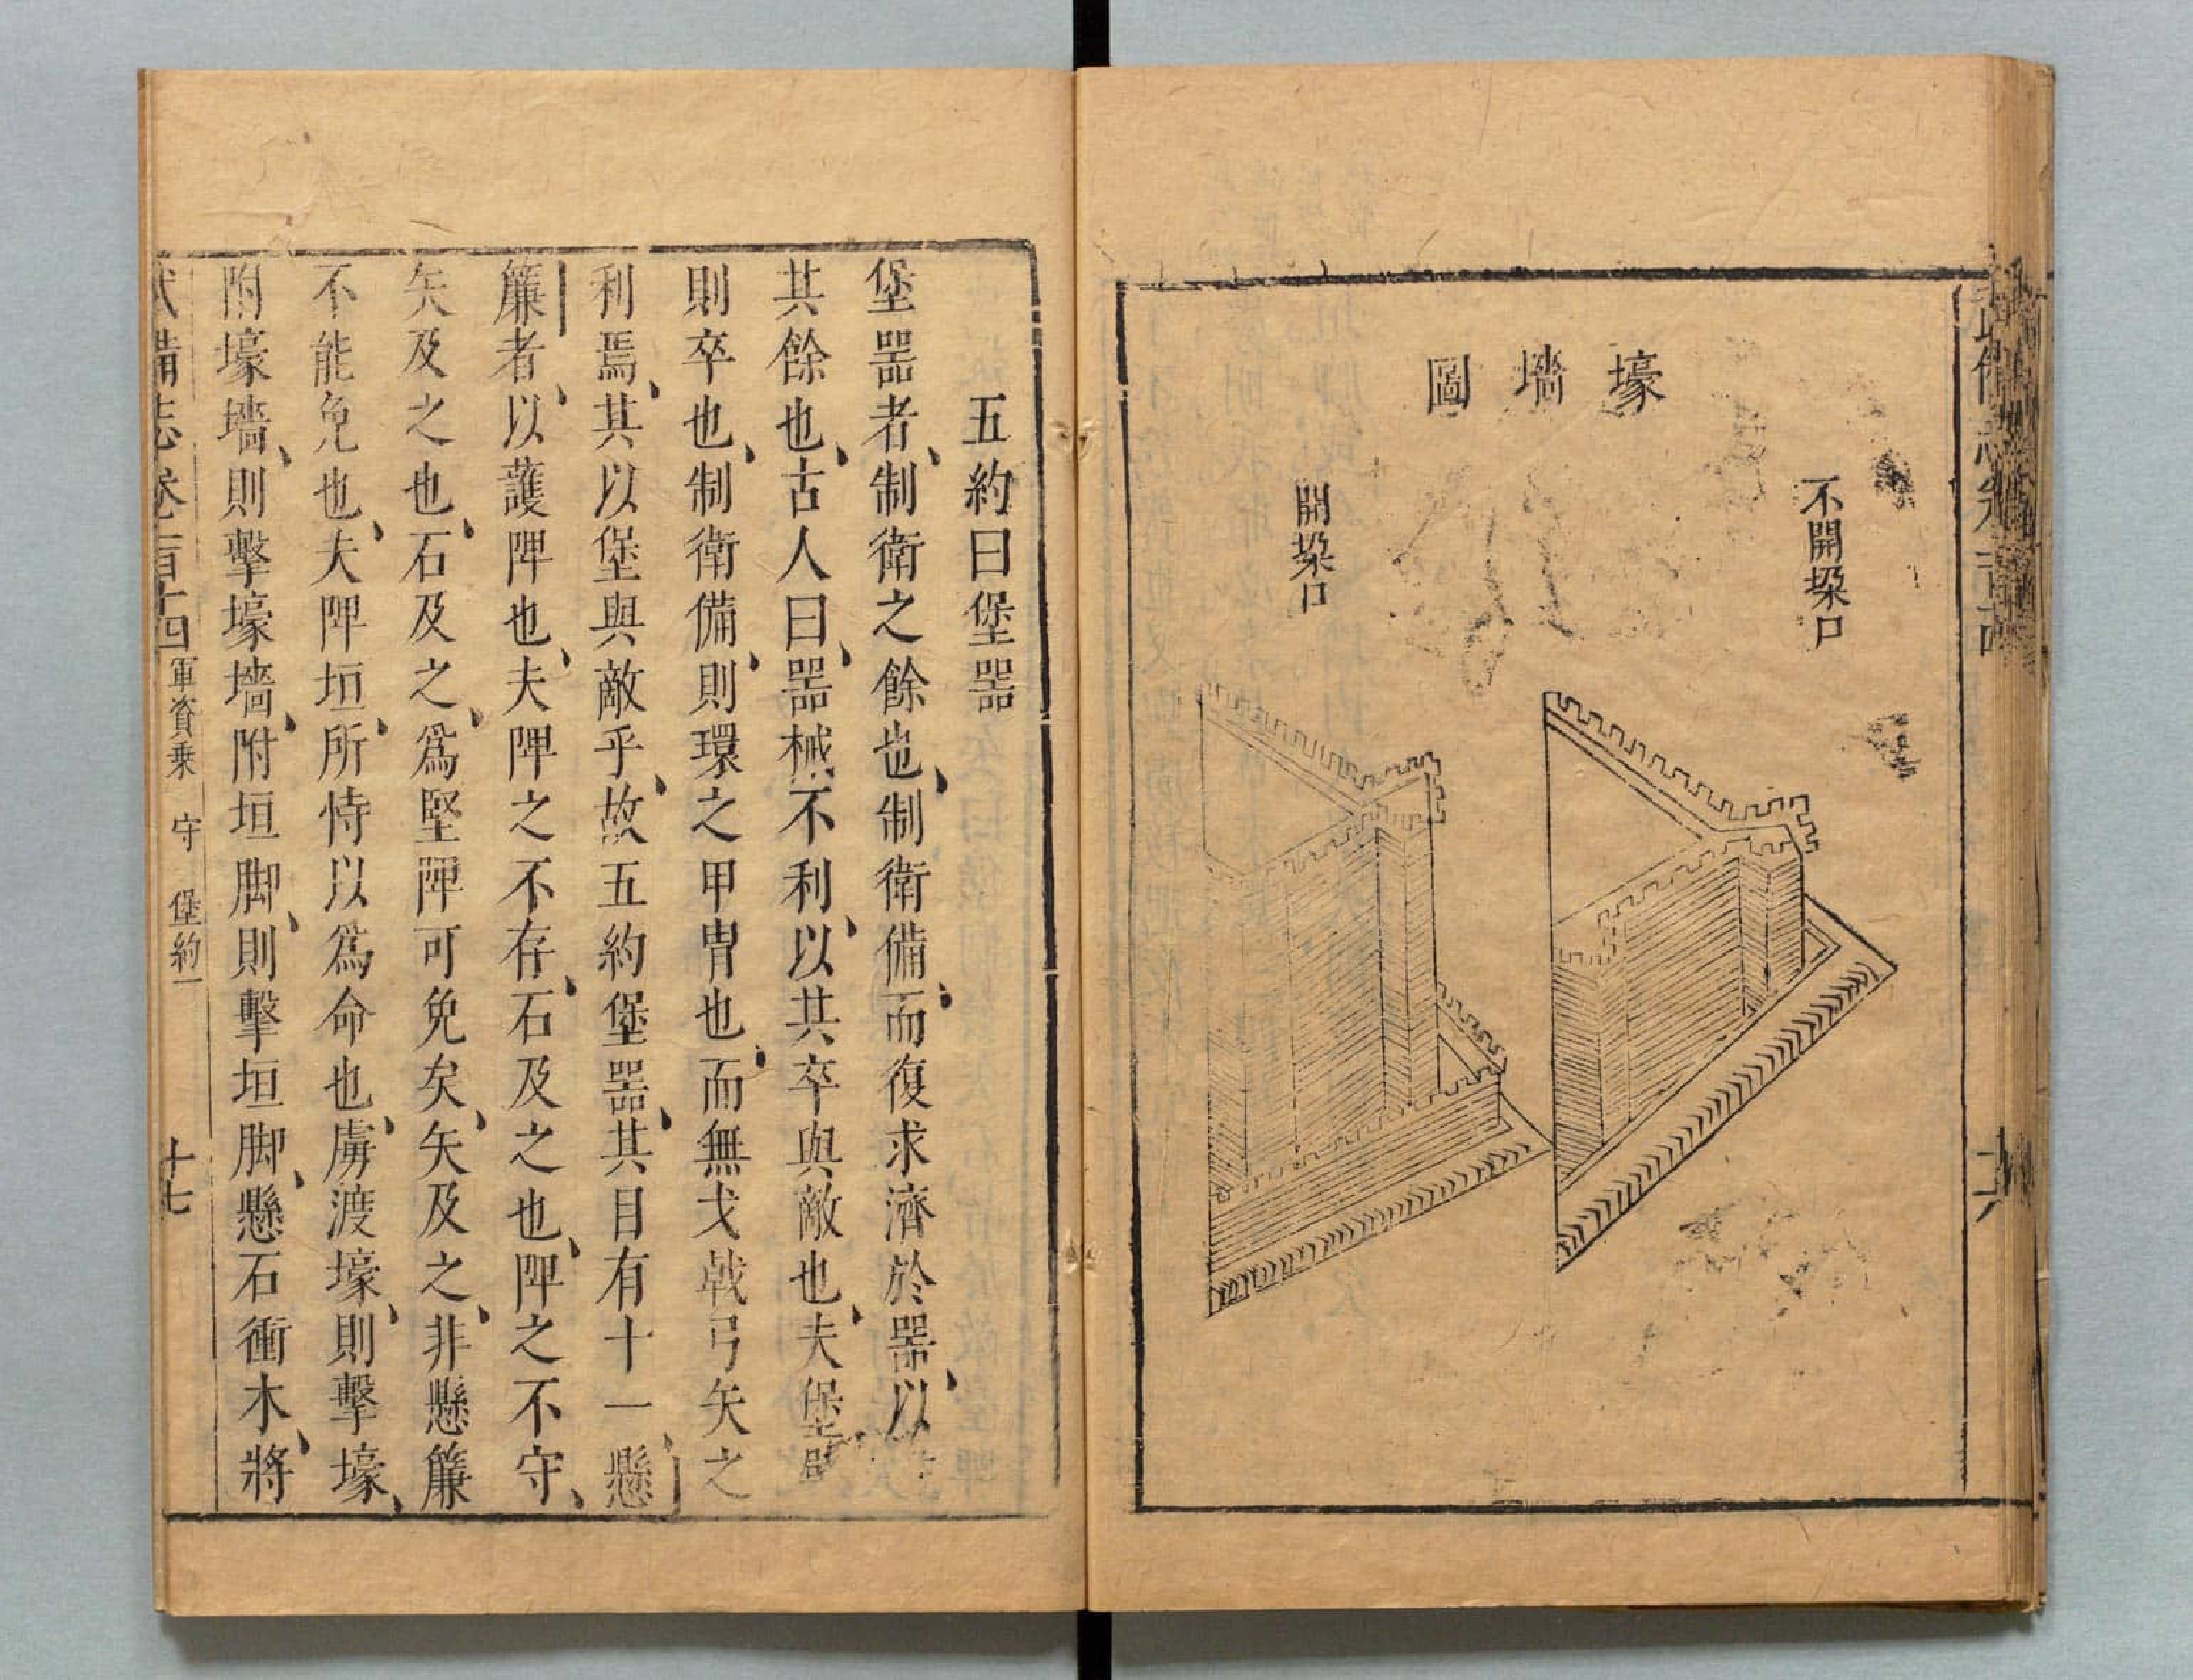 壕墻圖
不開垜口
開垜口
十六
五約曰堡噐
堡噐者、制衛之餘也、制衛備、而復求濟於噐、以
其餘也、古人曰、噐械不利、以其卒與敵也、夫堡
則卒也、制衛備、則環之甲冑也、而無戈戟弓矢之
利焉、其以堡與敵乎、故五約堡噐、其目有十一、懸
簾者、以護陴也、夫陴之不存、石及之也、陴之不守、
矢及之也、石及之、爲堅陴可免矣、矢及之、非懸簾
不能免也、夫陴垣、所恃以爲命也、虜渡壕、則擊壕、
附壕墻、則擊壕墻、附垣脚、則擊垣脚、懸石衝木、將
武備志卷一百十四 軍資乗 守 堡約一 十七